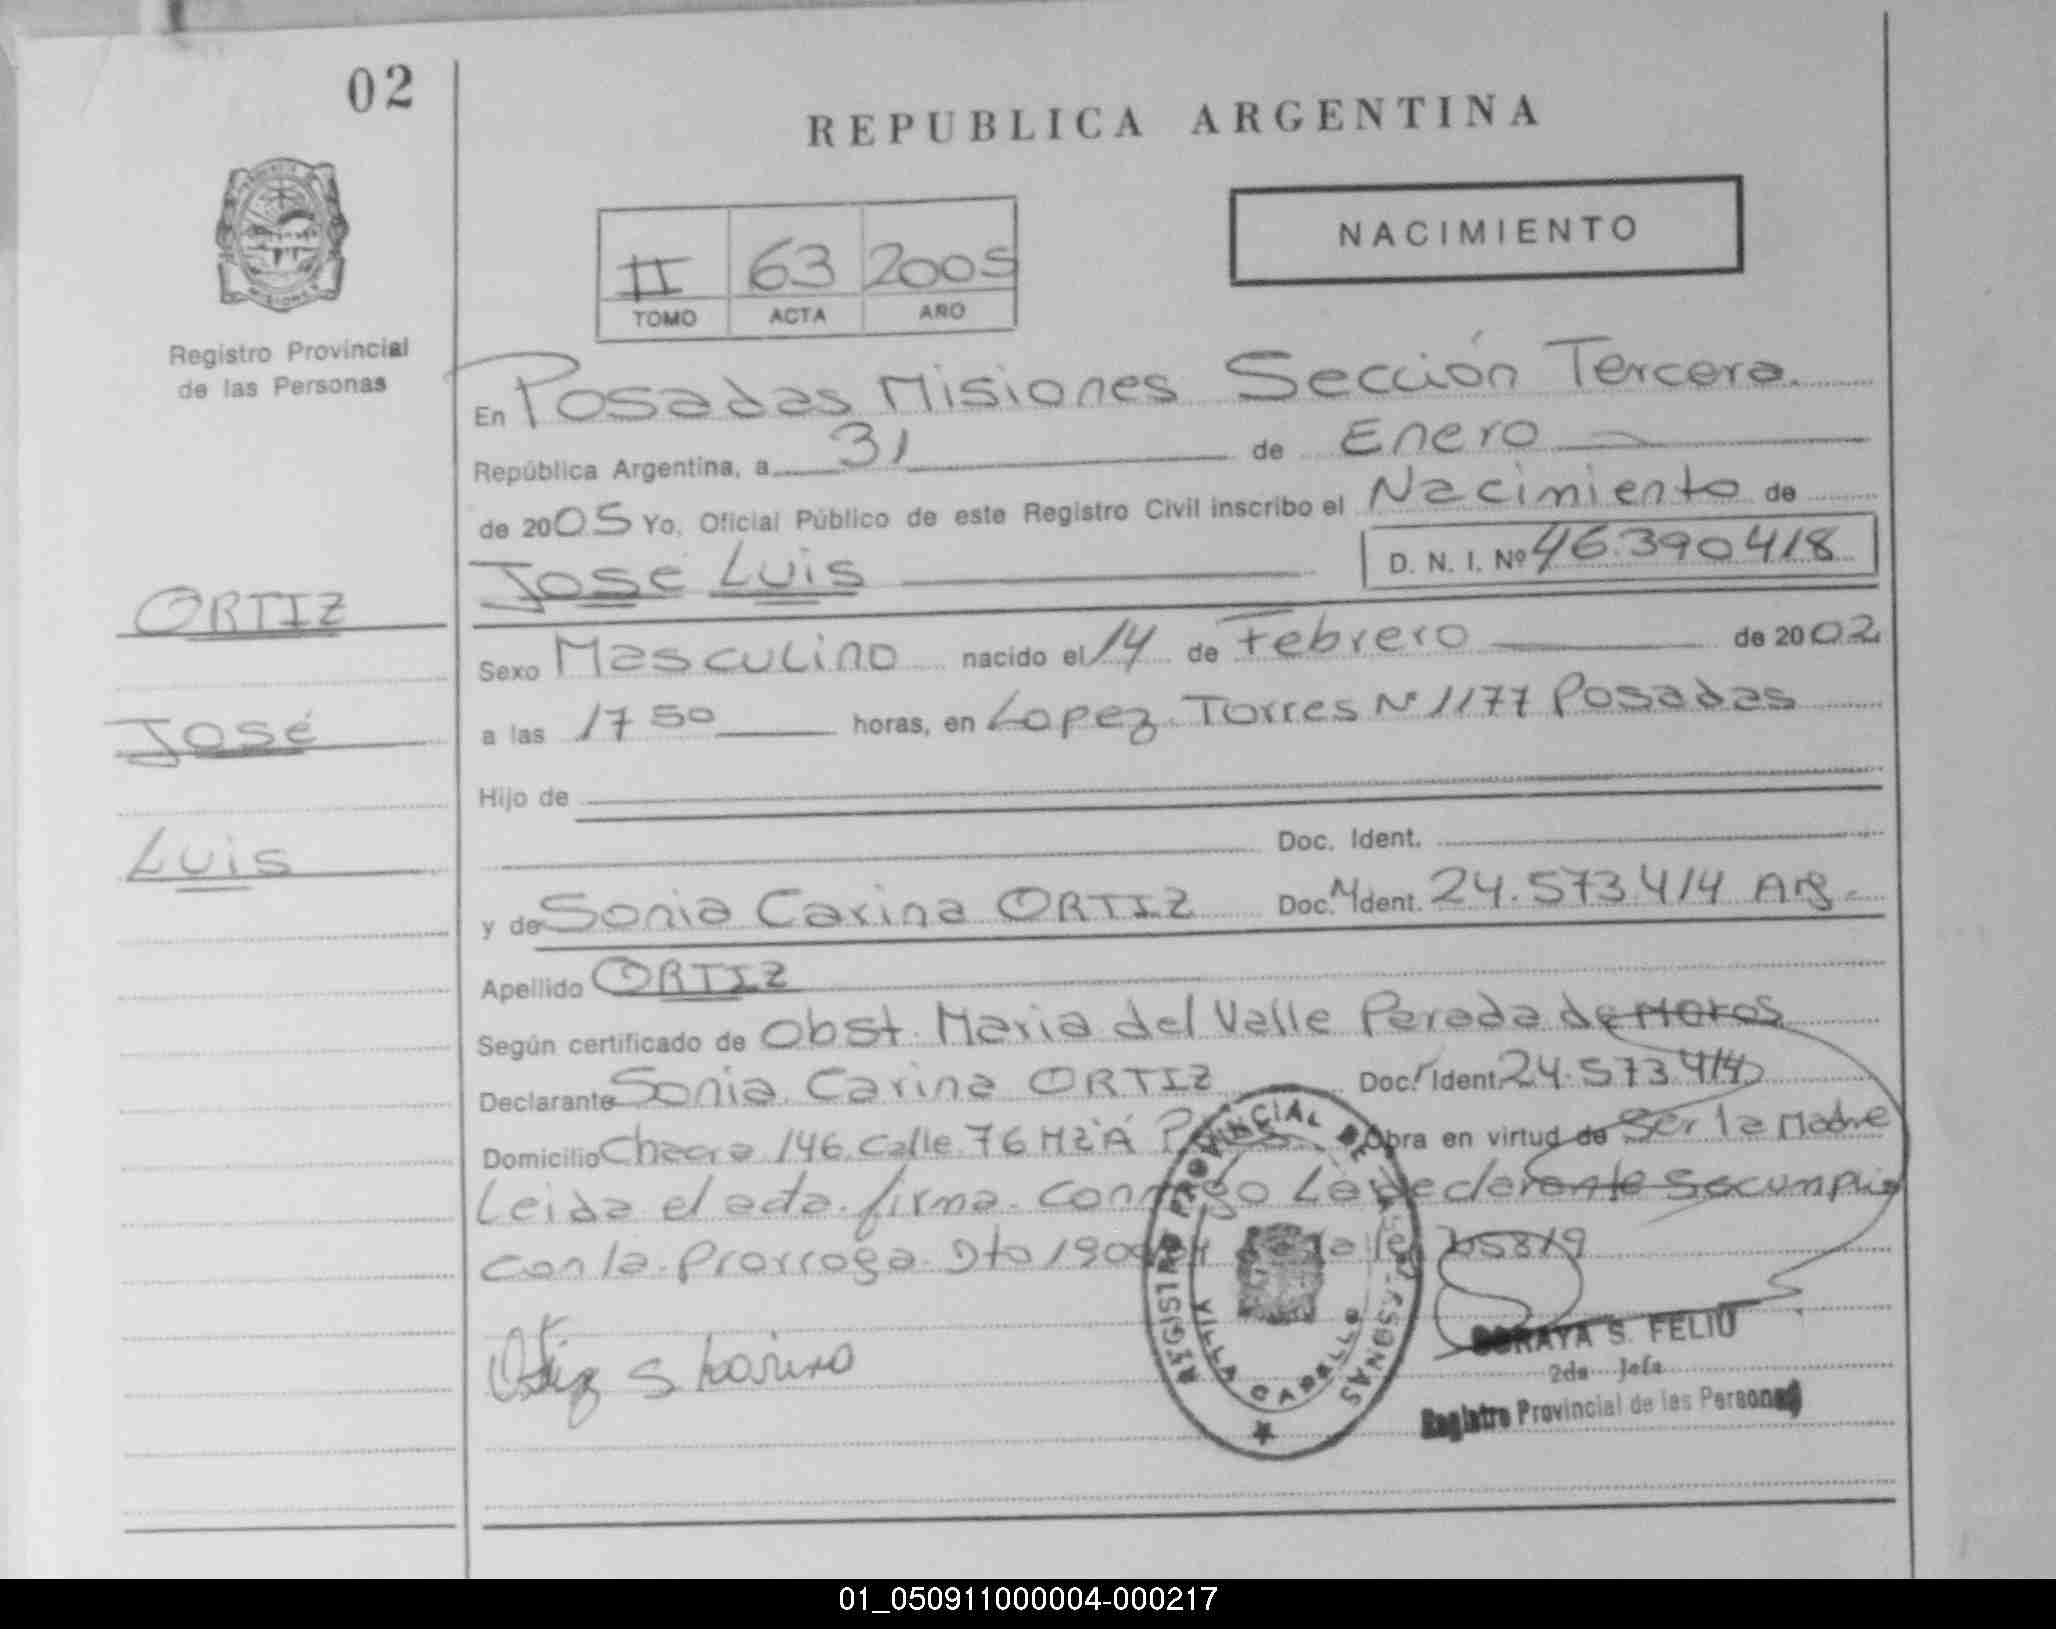 02
REPUBLICA ARGENTINA
NACIMIENTO
II 63 2005
TOMO ACTA AÑO
Registro Provincial
de las Personas
En Posadas Misiones Sección Tercera.
República Argentina, a 31 de Enero
de 2005 Yo, Oficial Público de este Registro Civil inscribo el Nacimiento de
José Luis D. N. I. Nº 46.390418
ORTIZ
José
Luis
Sexo Masculino nacido el 14 de Febrero de 2002
a las 17 50 horas, en Lopez Torres Nº 1177 Posadas
Hijo de
Doc. Ident.
y de Sonia Carina ORTIZ Doc. Ident. 24.573.414 Arg.
Apellido ORTIZ
Según certificado de Obst. Maria del Valle Parada de
Declarante Sonia Carina ORTIZ Doc. Ident. 24.573.414
Domicilio Chacra 146 Calle 76 Mz A Obra en virtud de Ser la Madre
Leida el acta firma conmigo La declarante Se cumplio
con la Prorroga Dto
Ortiz S Karina
REGISTRO PROVINCIAL DE LAS PERSONAS
VILLA CABELLO
SORAYA S. FELIU
2da Jefa
Registro Provincial de las Personas
01_050911000004-000217